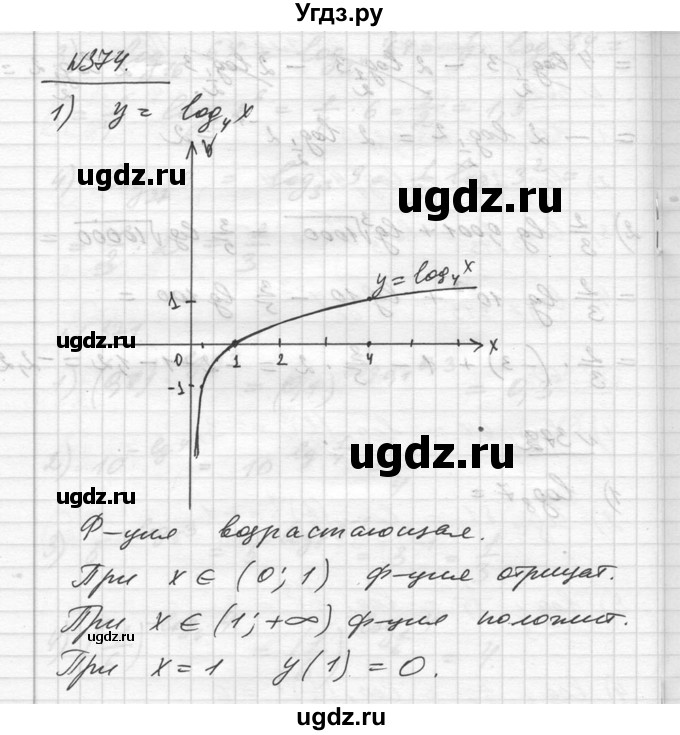 Угдз.ру
№374.
1) y = log₄x
ugdz.ru
ugdz.ru
y = log₄x
1
0 1 2 4 x
-1
ugdz.ru
ugdz.ru
Ф-ция возрастающая.
При x ∈ (0; 1) ф-ция отрицат.
При x ∈ (1; +∞) ф-ция положит.
ugdz.ru
При x = 1 y(1) = 0.
ugdz.ru